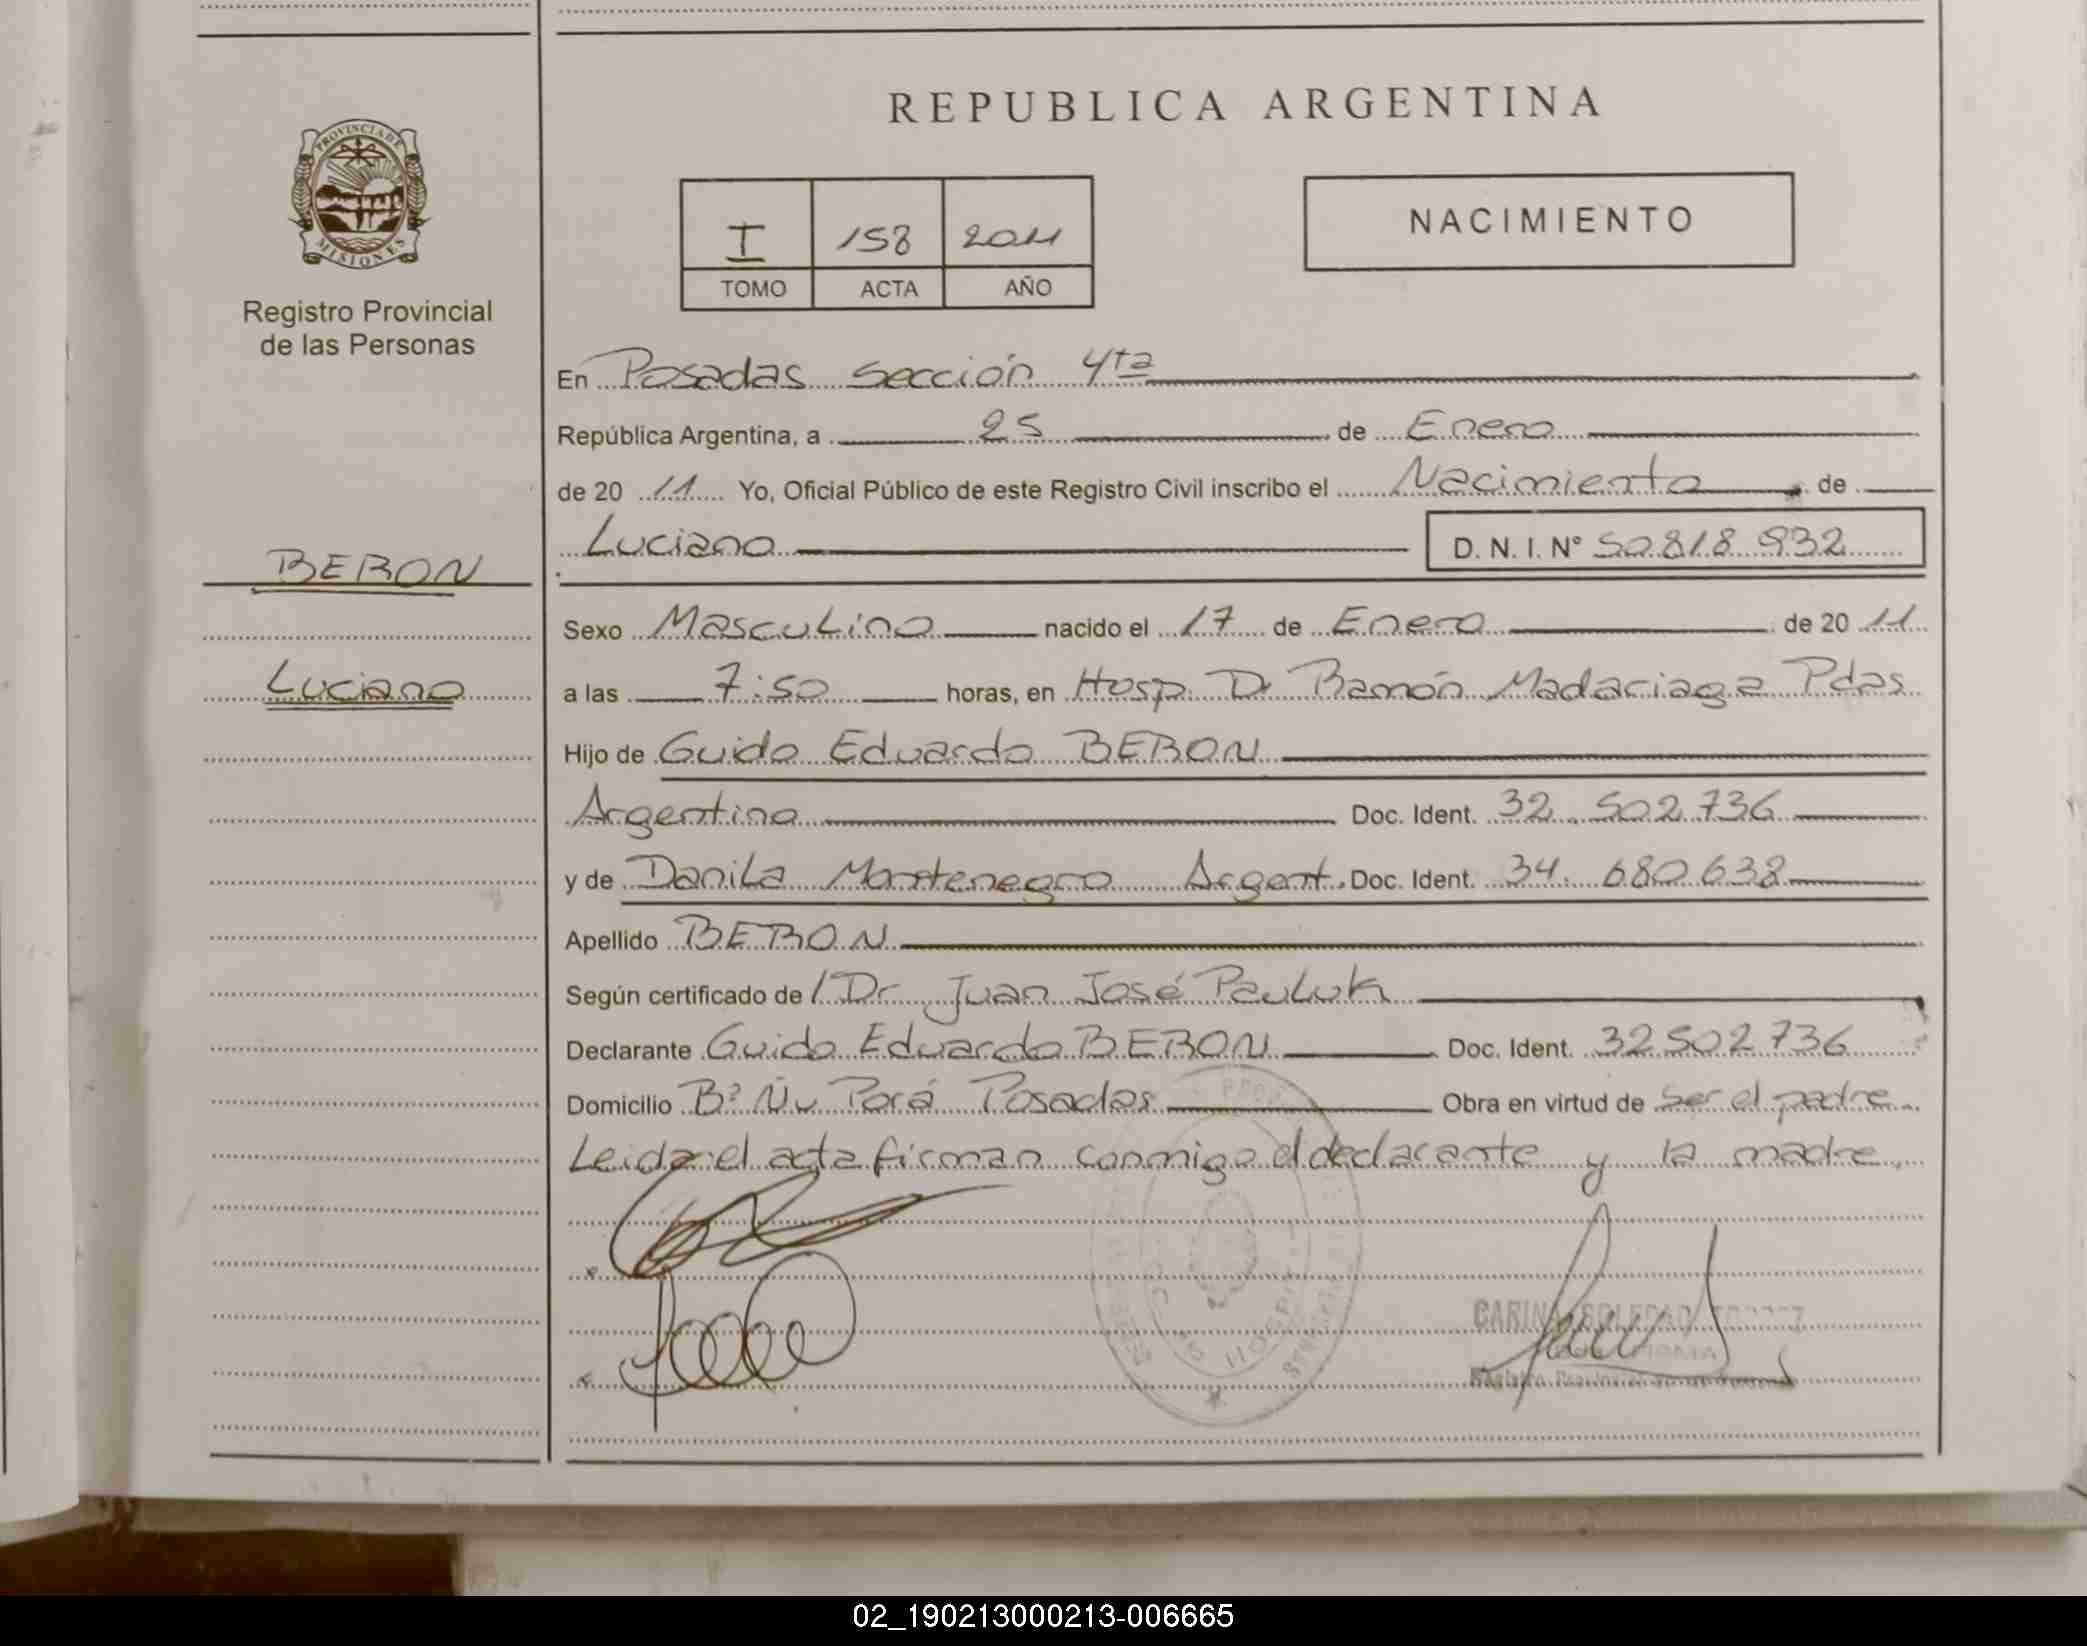 PROVINCIA DE
MISIONES
Registro Provincial
de las Personas
BERON
Luciano
REPUBLICA ARGENTINA
I 158 2011
TOMO ACTA AÑO
NACIMIENTO
En Posadas Sección 4ta
República Argentina, a 25 de Enero
de 20 11 Yo, Oficial Público de este Registro Civil inscribo el Nacimiento de
Luciano D. N. I. N° 50.818.932
Sexo Masculino nacido el 17 de Enero de 20 11
a las 7:50 horas, en Hosp. Dr Ramón Madariaga Pdas
Hijo de Guido Eduardo BERON
Argentino Doc. Ident. 32.502.736
y de Danila Montenegro Argent. Doc. Ident. 34.680.638
Apellido BERON
Según certificado de / Dr. Juan José Pauluk
Declarante Guido Eduardo BERON Doc. Ident. 32502736
Domicilio B° Ñu Porá Posadas Obra en virtud de Ser el padre.
Leida el acta firman conmigo el declarante y la madre.
CARINA SOLEDAD
FIRMA
Registro Provincial de las
02_190213000213-006665